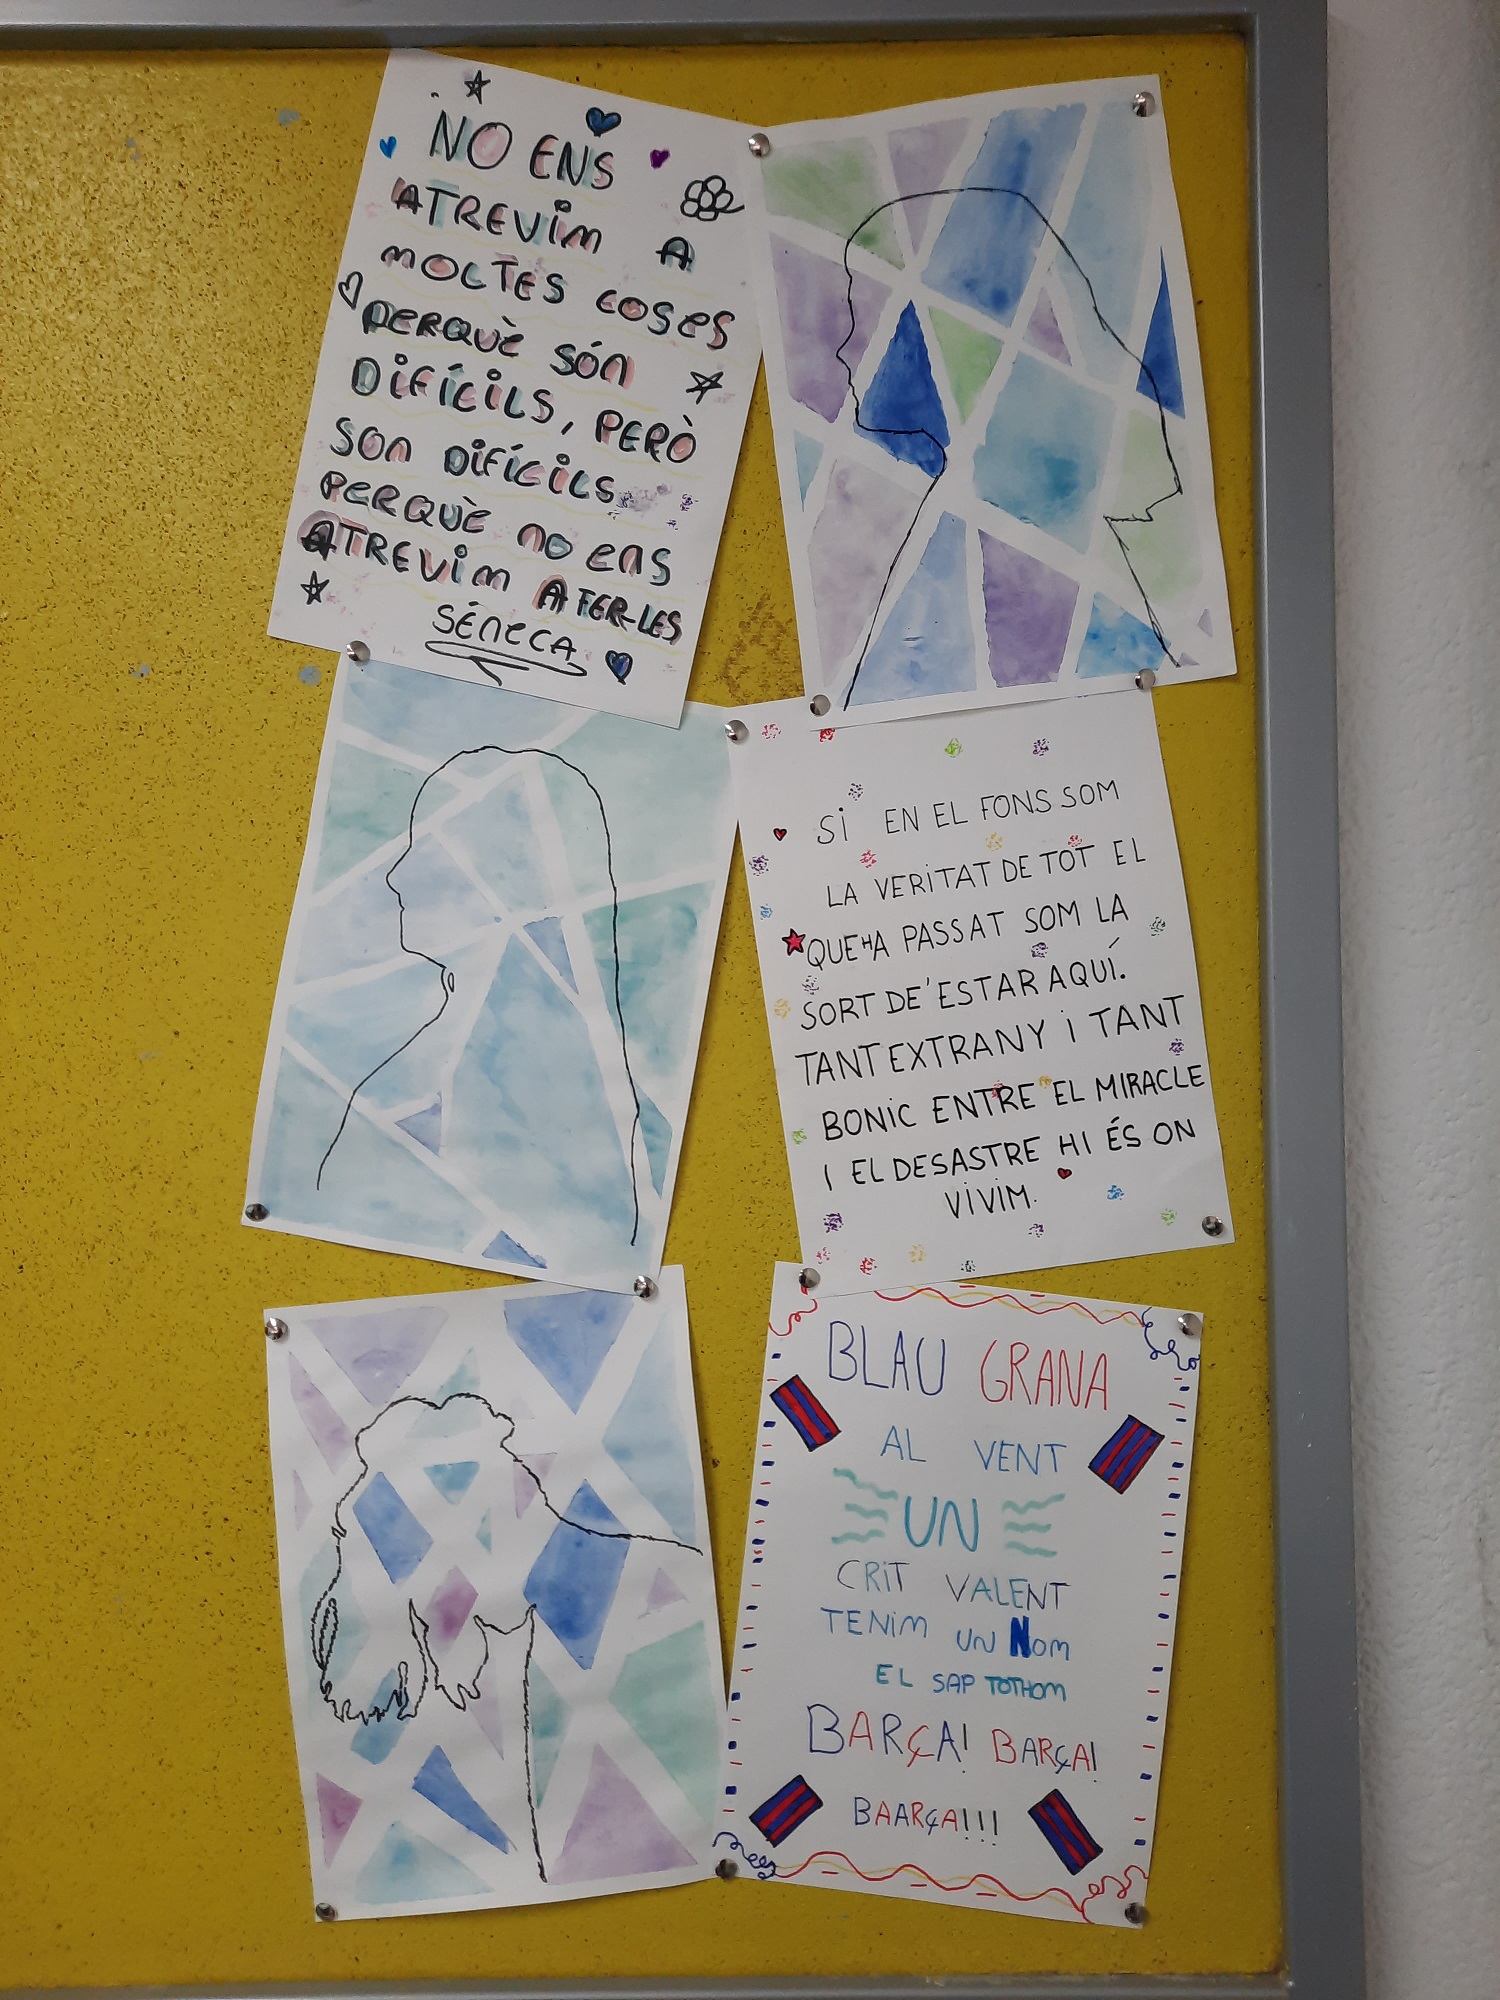 NO ENS
ATREVIM A
MOLTES COSES
PERQUÈ SÓN
DIFÍCILS, PERÒ
SON DIFÍCILS
PERQUÈ NO ENS
ATREVIM A FER-LES
SÉNECA
SI EN EL FONS SOM
LA VERITAT DE TOT EL
QUE HA PASSAT SOM LA
SORT DE'ESTAR AQUÍ.
TANT EXTRANY I TANT
BONIC ENTRE EL MIRACLE
I EL DESASTRE HI ÉS ON
VIVIM.
BLAU GRANA
AL VENT
UN
CRIT VALENT
TENIM UN NOM
EL SAP TOTHOM
BARÇA! BARÇA!
BAARÇA!!!